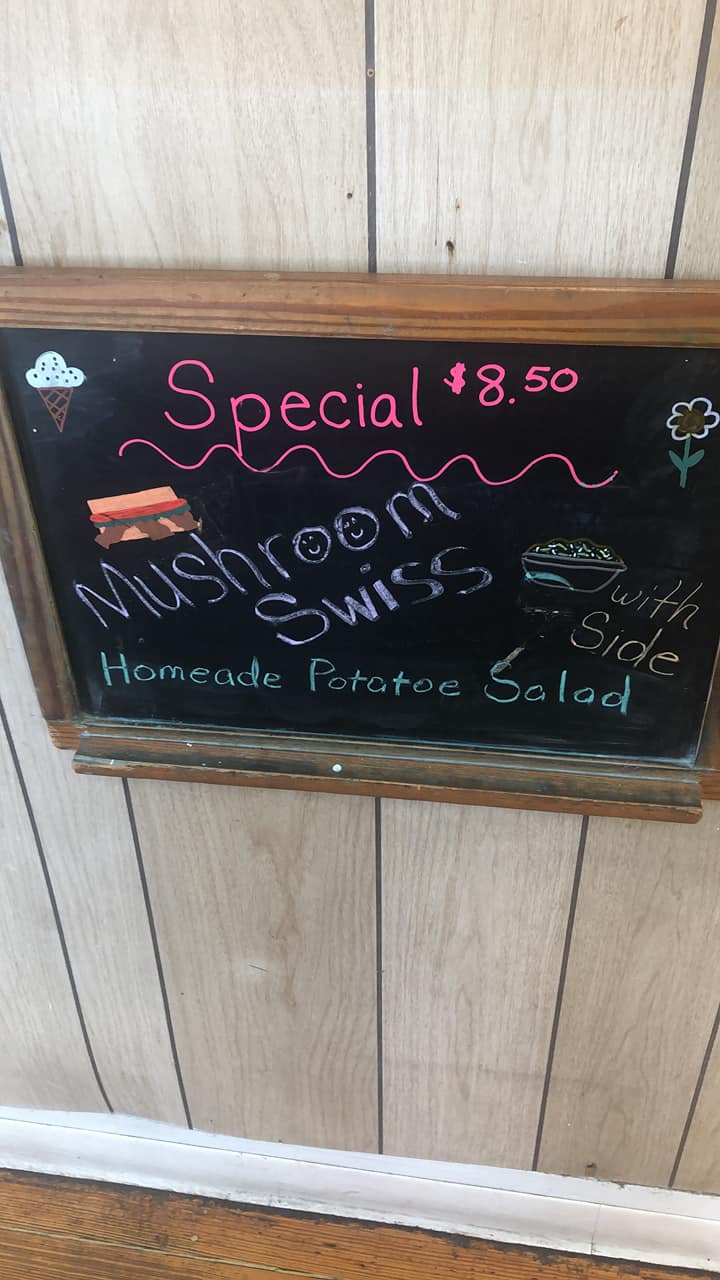 Special $8.50
Mushroom
Swiss
with
Side
Homeade Potatoe Salad